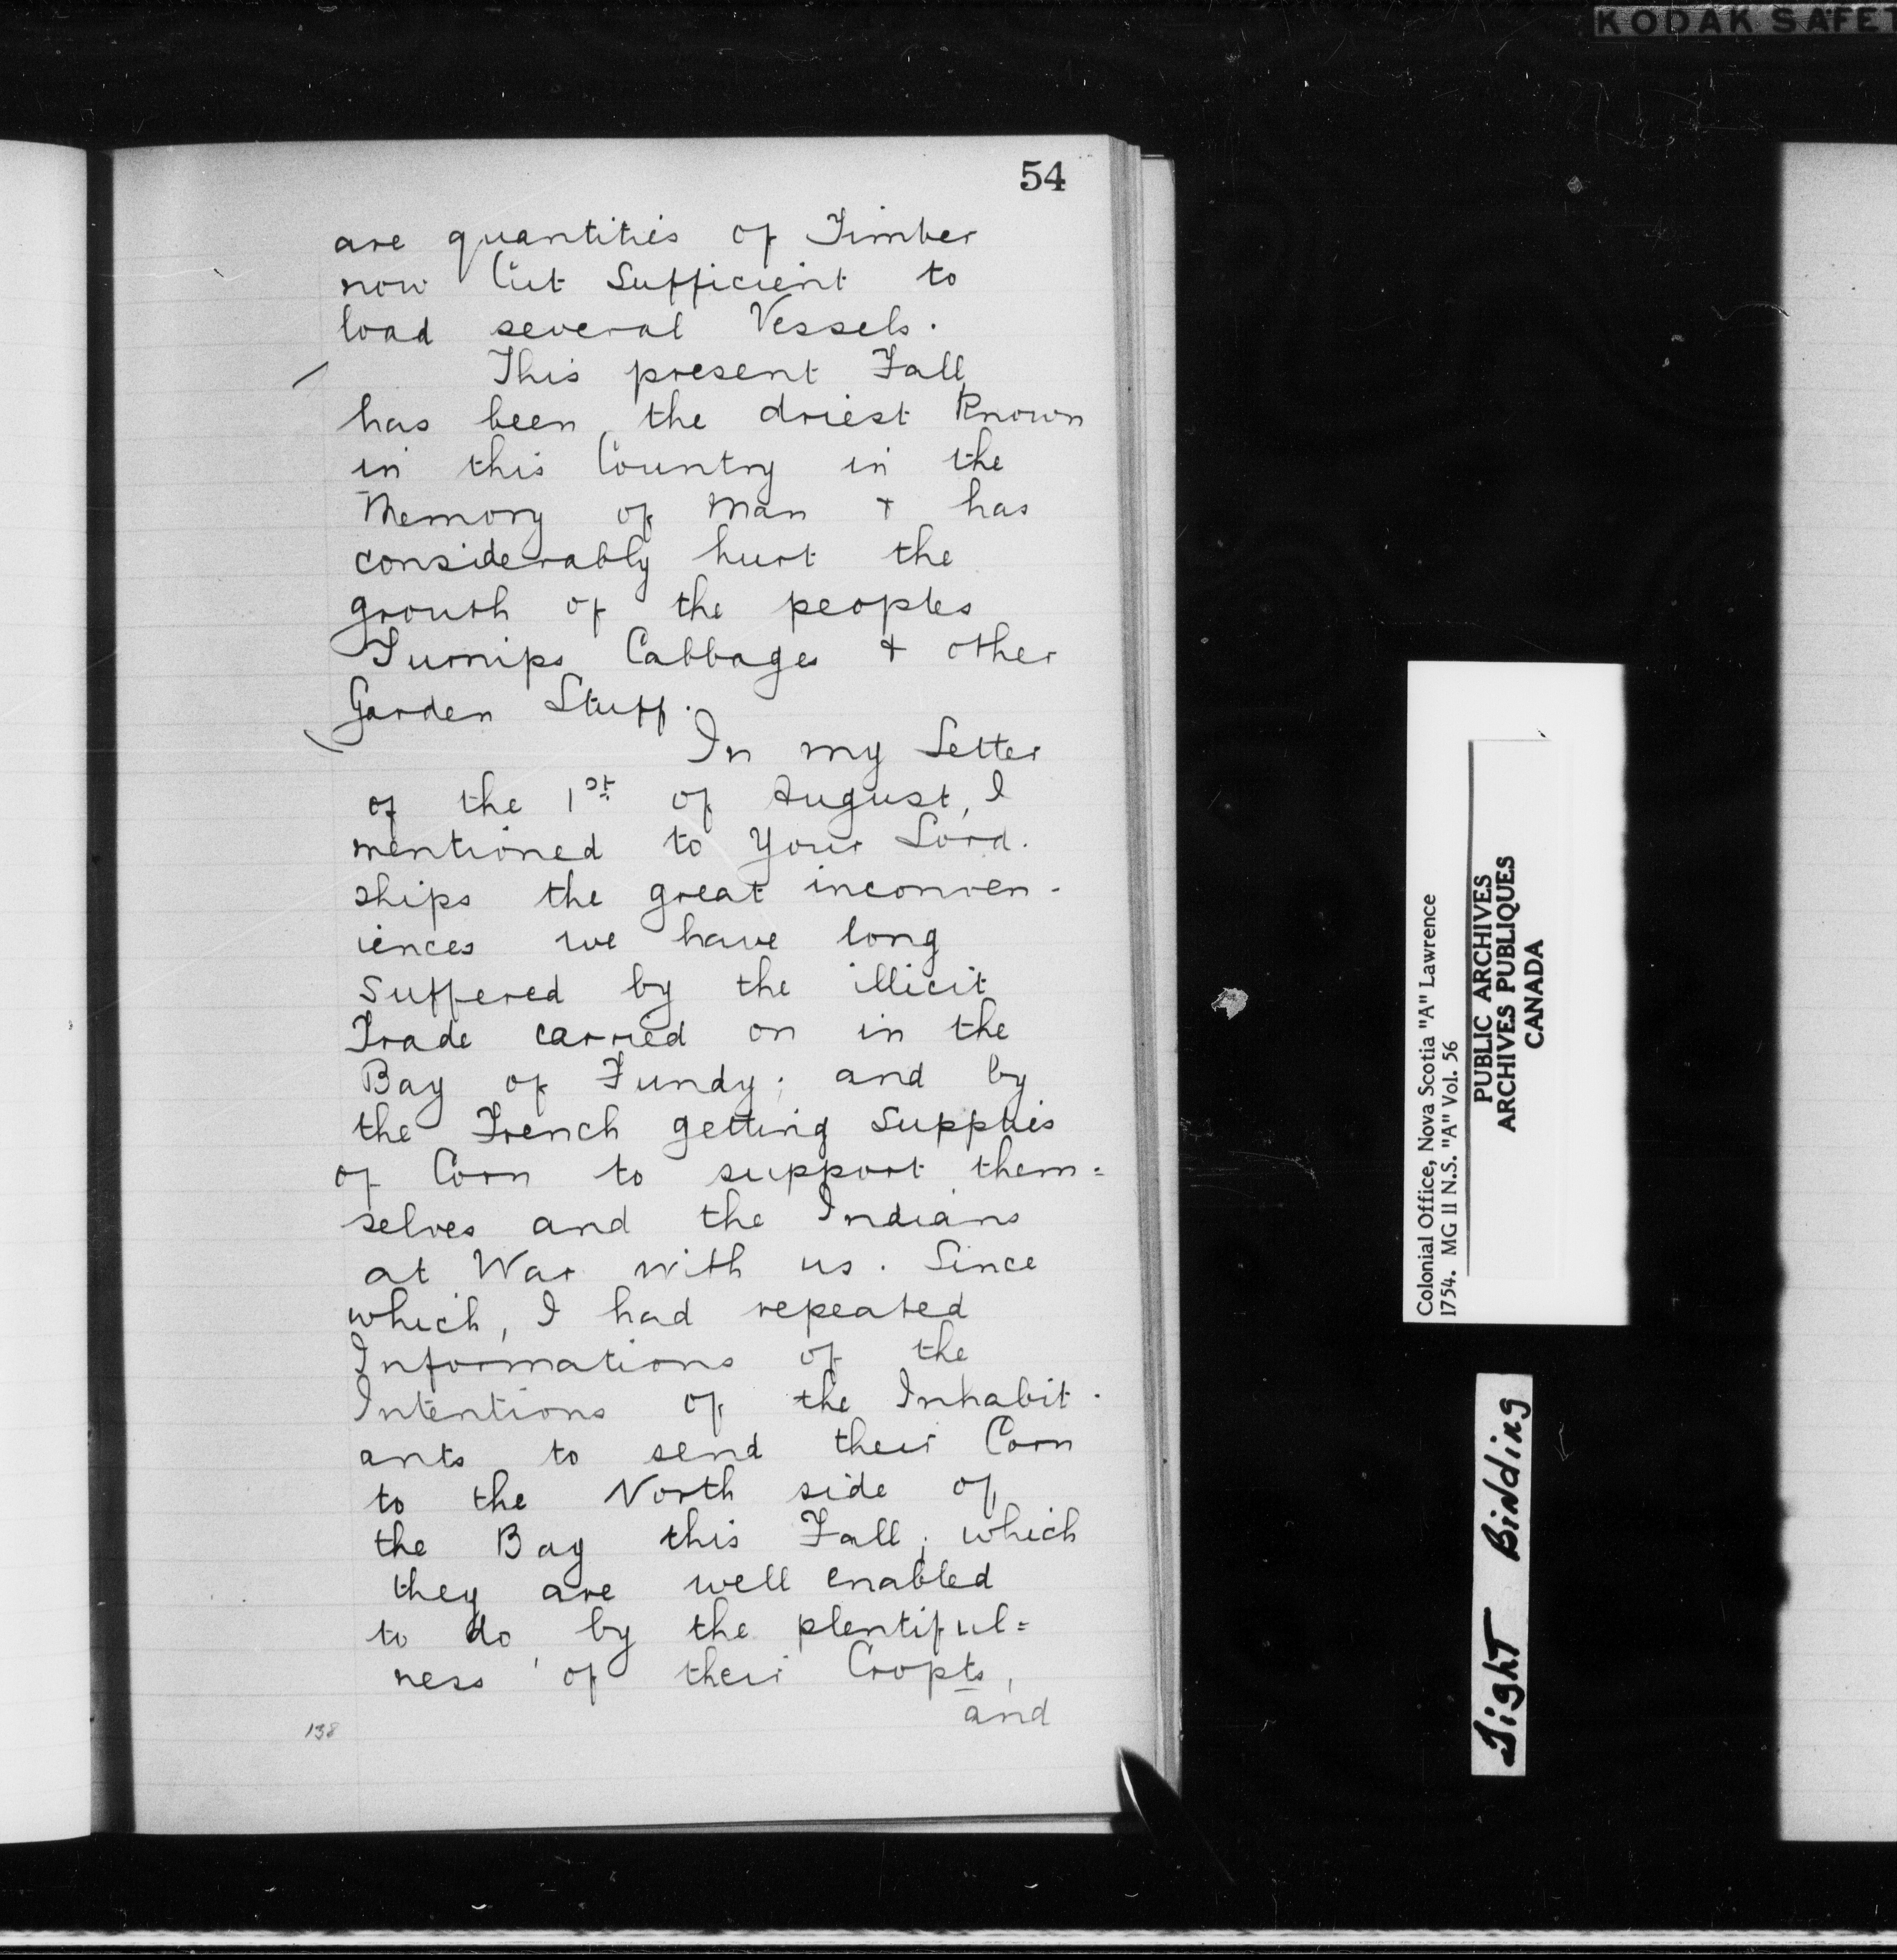 KODAK SAFET
54
are quantities of Timber
now Cut Sufficient to
load several Vessels.
This present Fall
has been, the driest Known
in this Country in the
Memory of Man + has
considerably hurt the
growth of the peoples
Turnips Cabbages + other
Garden Stuff.
In my Letter
of the 1st of August, I
mentioned to Your Lord-
ships the great inconven-
iences we have long
Suffered by the illicit
Trade carried on in the
Bay of Fundy; and by
the French getting Supplies
of Corn to support them=
selves and the Indians
at War with us. Since
which, I had repeated
Informations of the
Intentions of the Inhabit-
ants to send their Corn
to the North side of
the Bay this Fall; which
they are well enabled
to do by the plentiful=
ness of their Cropts,
and
138
Colonial Office, Nova Scotia "A" Lawrence
1754. MG 11 N.S. "A" Vol. 56
PUBLIC ARCHIVES
ARCHIVES PUBLIQUES
CANADA
Tight Binding